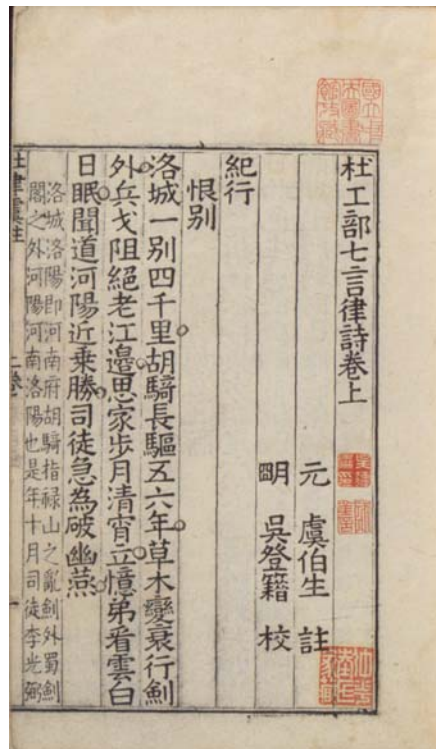 國立中央圖書館收藏
杜工部七言律詩卷上
元 虞伯生 註
明 吳登籍 校
紀行
恨别
洛城一别四千里胡騎長驅五六年草木變衰行劍
外兵戈阻絕老江邊思家步月清宵立憶弟看雲白
日眠聞道河陽近乘勝司徒急為破幽燕
洛城洛陽即河南府胡騎指禄山之亂劍外蜀劍
閣之外河陽河南洛陽也是年十月司徒李光弼
杜律虞註 上卷 一